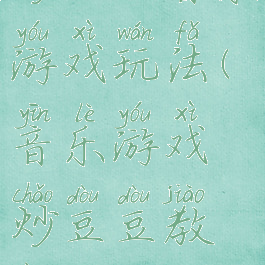 yóu xì wán fǎ
游戏玩法(
yīn lè yóu xì
音乐游戏
chǎo dòu dòu jiào
炒豆豆教